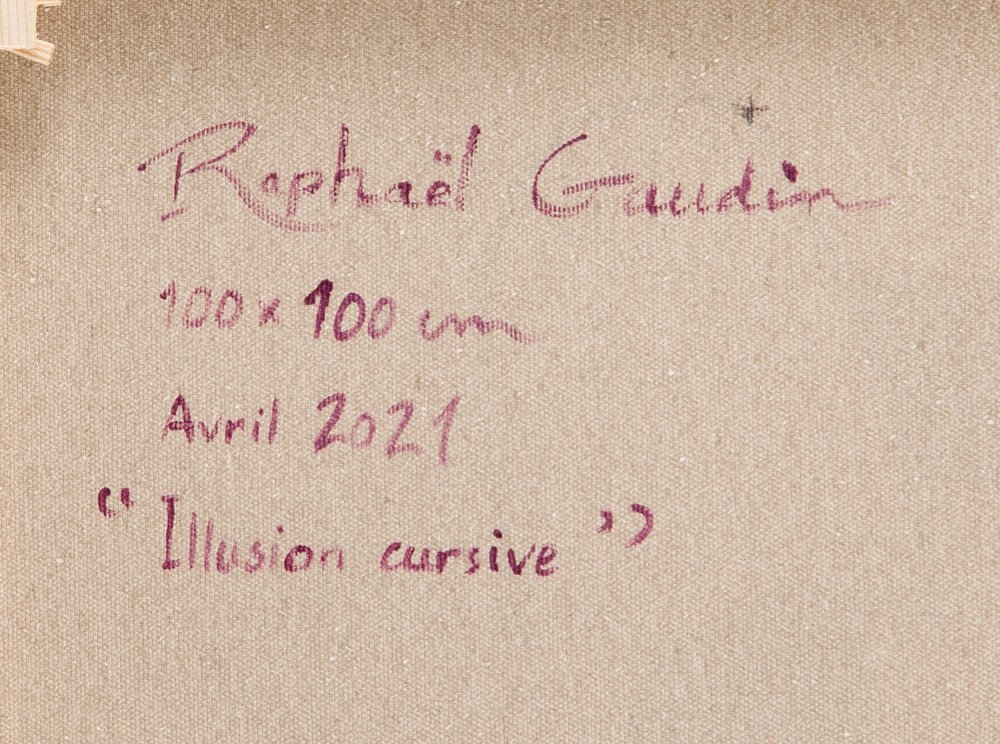 Raphaël Gaudin
100 x 100 cm
Avril 2021
“Illusion cursive”